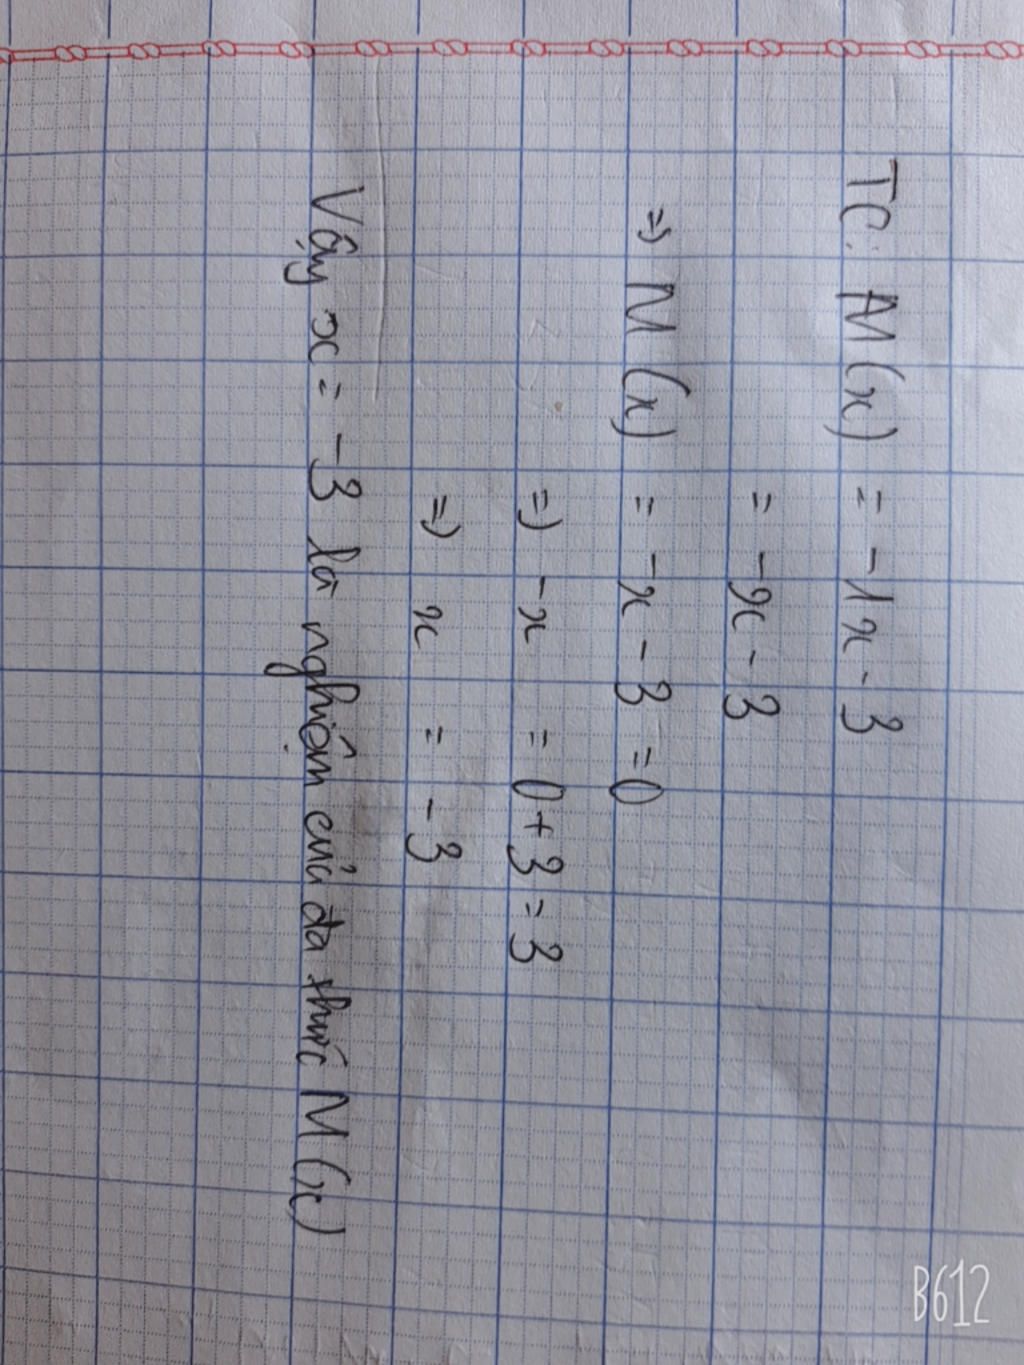 TC: M(x) = -1x - 3
= -x - 3
=> M(x) = -x - 3 = 0
=> -x = 0 + 3 = 3
=> x = -3
Vậy x = -3 là nghiệm của đa thức M(x)
B612